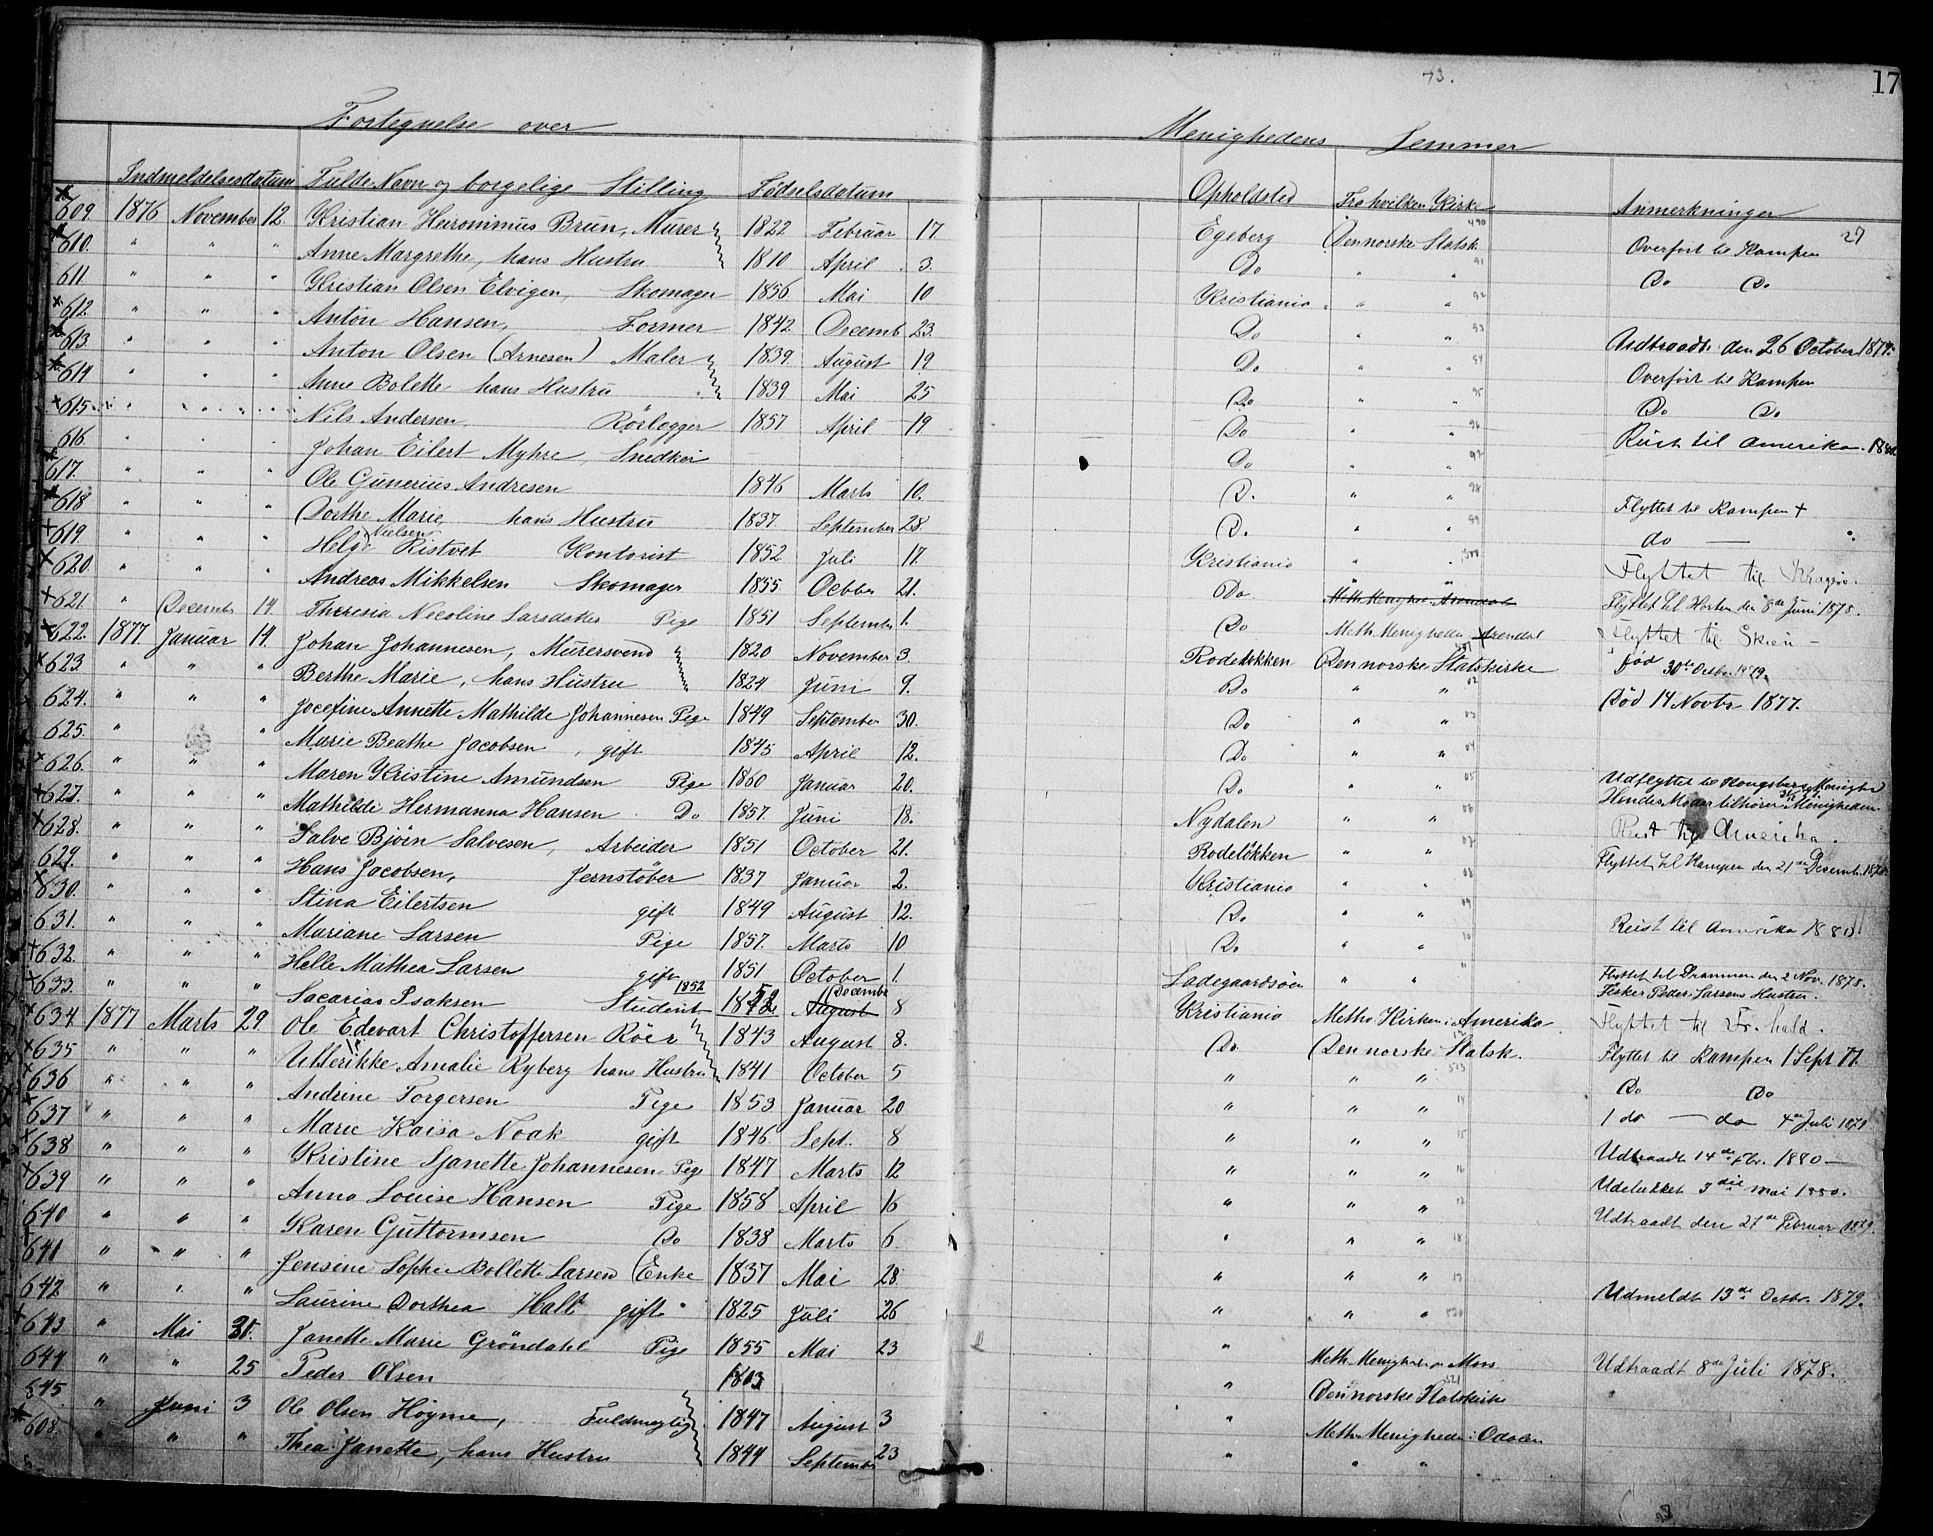 73.
17
Fortegnelse over Menighedens Lemmer
Indmeldelsesdatum Fulde Navn og borgelige Stilling Fødselsdatum Opholdsted Fra hvilken Kirke Anmerkninger
27
609. 1876 November 12. Kristian Hironimus Brun, Murer 1822 Februar 17 Egeberg Den norske Statsk. 490 Overført til Kampen
610. " " " Anne Margrethe, hans Hustru 1810 April 3. Do " " 91 Do Do
611 " " " Kristian Olsen Elvigen, Skomager 1856 Mai 10 Kristiania " " 92
612 " " " Anton Hansen, Former 1842 Decemb 23. Do " " 93 Udtraadt den 26 October 1879.
613. " " " Anton Olsen (Arnesen) Maler 1839 August 19 Do " " 94 Overført til Kampen
614 " " " Anne Bolette hans Hustru 1839 Mai 25 Do " " 95 Do Do
615 " " " Nils Andersen Rörlegger 1857 April 19 Do " " 96 Reist til Amerika.
616 " " " Johan Eilert Myhre, Snedker Do " " 97
617. " " " Ole Gunerius Andresen 1846 Marts 10. D. " " 98 Flyttet til Kampen +
618 " " " Dorthe Marie, hans Hustru 1837. September 28. D. " " 99 do —
619 " " " Helge Nielsen Ristvet Kontorist 1852 Juli 17. Kristiania " " 500 Flyttet til Kragerø.
620. " " " Andreas Mikkelsen Skomager 1855 Octber 21. Do Meth. Menighe. Arendal Flyttet til Horten den 8de Juni 1878.
621 " Decembr 14. Theresia Nicoline Larsdotter Pige 1851 Septembr 1. Do Meth. Menigheden Arendal Flyttet til Skien —
622. 1877 Januar 14. Johan Johannesen, Murersvend 1820 November 3. Rodeløkken Den norske Statskirke 501 Død 30te Octbr. 1879.
623. " " " Berthe Marie, hans Hustru 1824 Juni 9. Do " " 02 Død 14 Novbr 1877.
624. " " " Josefine Annette Mathilde Johannesen Pige 1849 September 30. Do " " 03
625. " " " Marie Beathe Jacobsen, gift 1845 April 12. Do " " 04
626. " " " Maren Kristine Amundsen Pige 1860 Januar 20. Do " " 05 Udflyttet til Kongsberg Menighd
627. " " " Mathilde Hermanna Hansen Do 1857. Juni 18. Nydalen " " 06 Hendes Moder tilhører Menigheden
628. " " " Salve Bjöin Salvesen, Arbeider 1851 October 21. Rodeløkken " " 07 Reist til Amerika.
629. " " " Hans Jacobsen, Jernstöber 1837 Januar 2. Kristiania " " 08 Flyttet til Kampen den 21de Decemb.
630. " " " Stina Eilertsen gift 1849 August 12. Do " " 09
631. " " " Mariane Larsen Pige 1857. Marts 10 Do " " 10 Reist til Amerika 1880
632. " " " Helle Mathea Larsen gift 1851 October 1. Ladegaardsöen " " 11 Flyttet til Drammen den 2 Nov. 1878.
Fisker Peder Larsens Hustru.
633. " " " Sacarias Isaksen Student 1852 August Decembr 8 Kristiania Metho. Kirken i Amerika Flyttet til Fr.hald.
634 1877 Marts 29. Ole Edevart Christoffersen Röer 1843 August 8. Do Den norske Statsk. 12 Flyttet til Kampen 1 Sept 77.
635 " " " Ullerikke Amalie Ryberg hans Hustru 1841 October 5 " " " 513 Do Do
636 " " " Andrine Torgersen Pige 1853 Januar 20 " " " 14 1 do — do 4de Juli 1879
637 " " " Marie Kaisa Noak gift 1846 Sept. 8 " " " 15 Udtraadt 14de Fbr. 1880 —
638 " " " Kristine Sjanette Johannesen Pige 1847 Marts 12 " " " 16 Udelukket 3die Mai 1880.
639 " " " Anna Louise Hansen Pige 1858 April 16 " " " 17 Udtraadt den 27de Februar 1879.
640 " " " Karen Guttormsen Do 1838 Marts 6. " " " 18
641 " " " Jensine Sophie Bollette Larsen (Enke 1837 Mai 28 " " " 19 Udmeldt 13de Octbr. 1879.
642 " " " Laurine Dorthea Hall gift 1825 Juli 26 " " " 520
643 " Mai 31. Janette Marie Gröndahl Pige 1855 Mai 23 " Meth. Menighed i Moss Udtraadt 8de Juli 1878.
644 " " 25 Peder Olsen 1803 " Den norske Statskirke 521
645. " Juni 3 Ole Olsen Höyme, Fuldmegtig 1847 August 3 " Meth. Menighed i Odalen
608. " " " Thea Janette, hans Hustru 1844 September 23 " " "